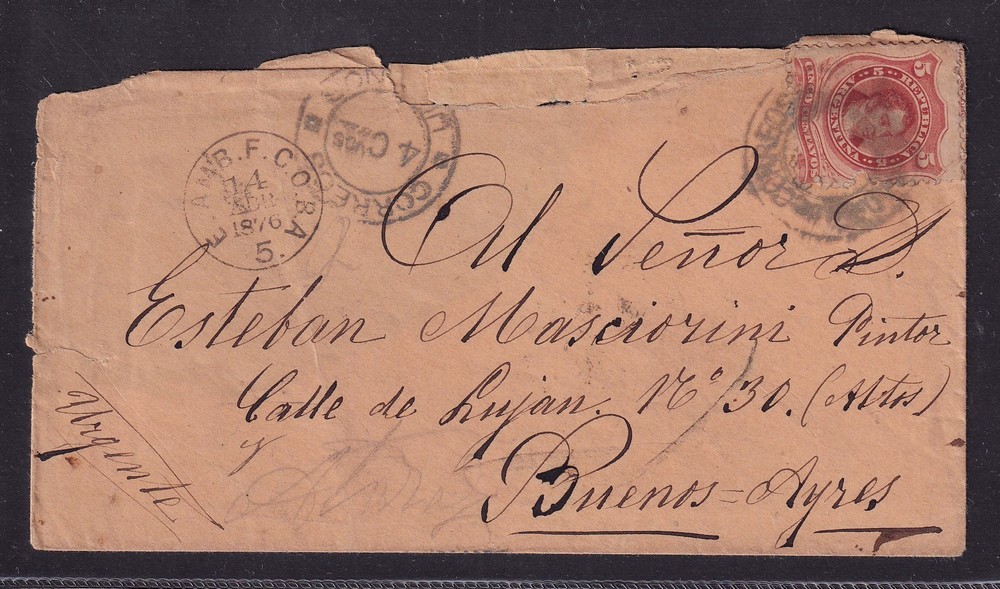 REPUBLICA ARGENTINA
5 5 5
CINCO CENTAVOS
4 Cvos
CORREOS
E. AMB. F. C. O B A
14
ABR
1876
5.
Al Señor D.
Esteban Masciorini Pintor
Calle de Lujan. Nº 30. (Altos)
Buenos=Ayres
Urgente